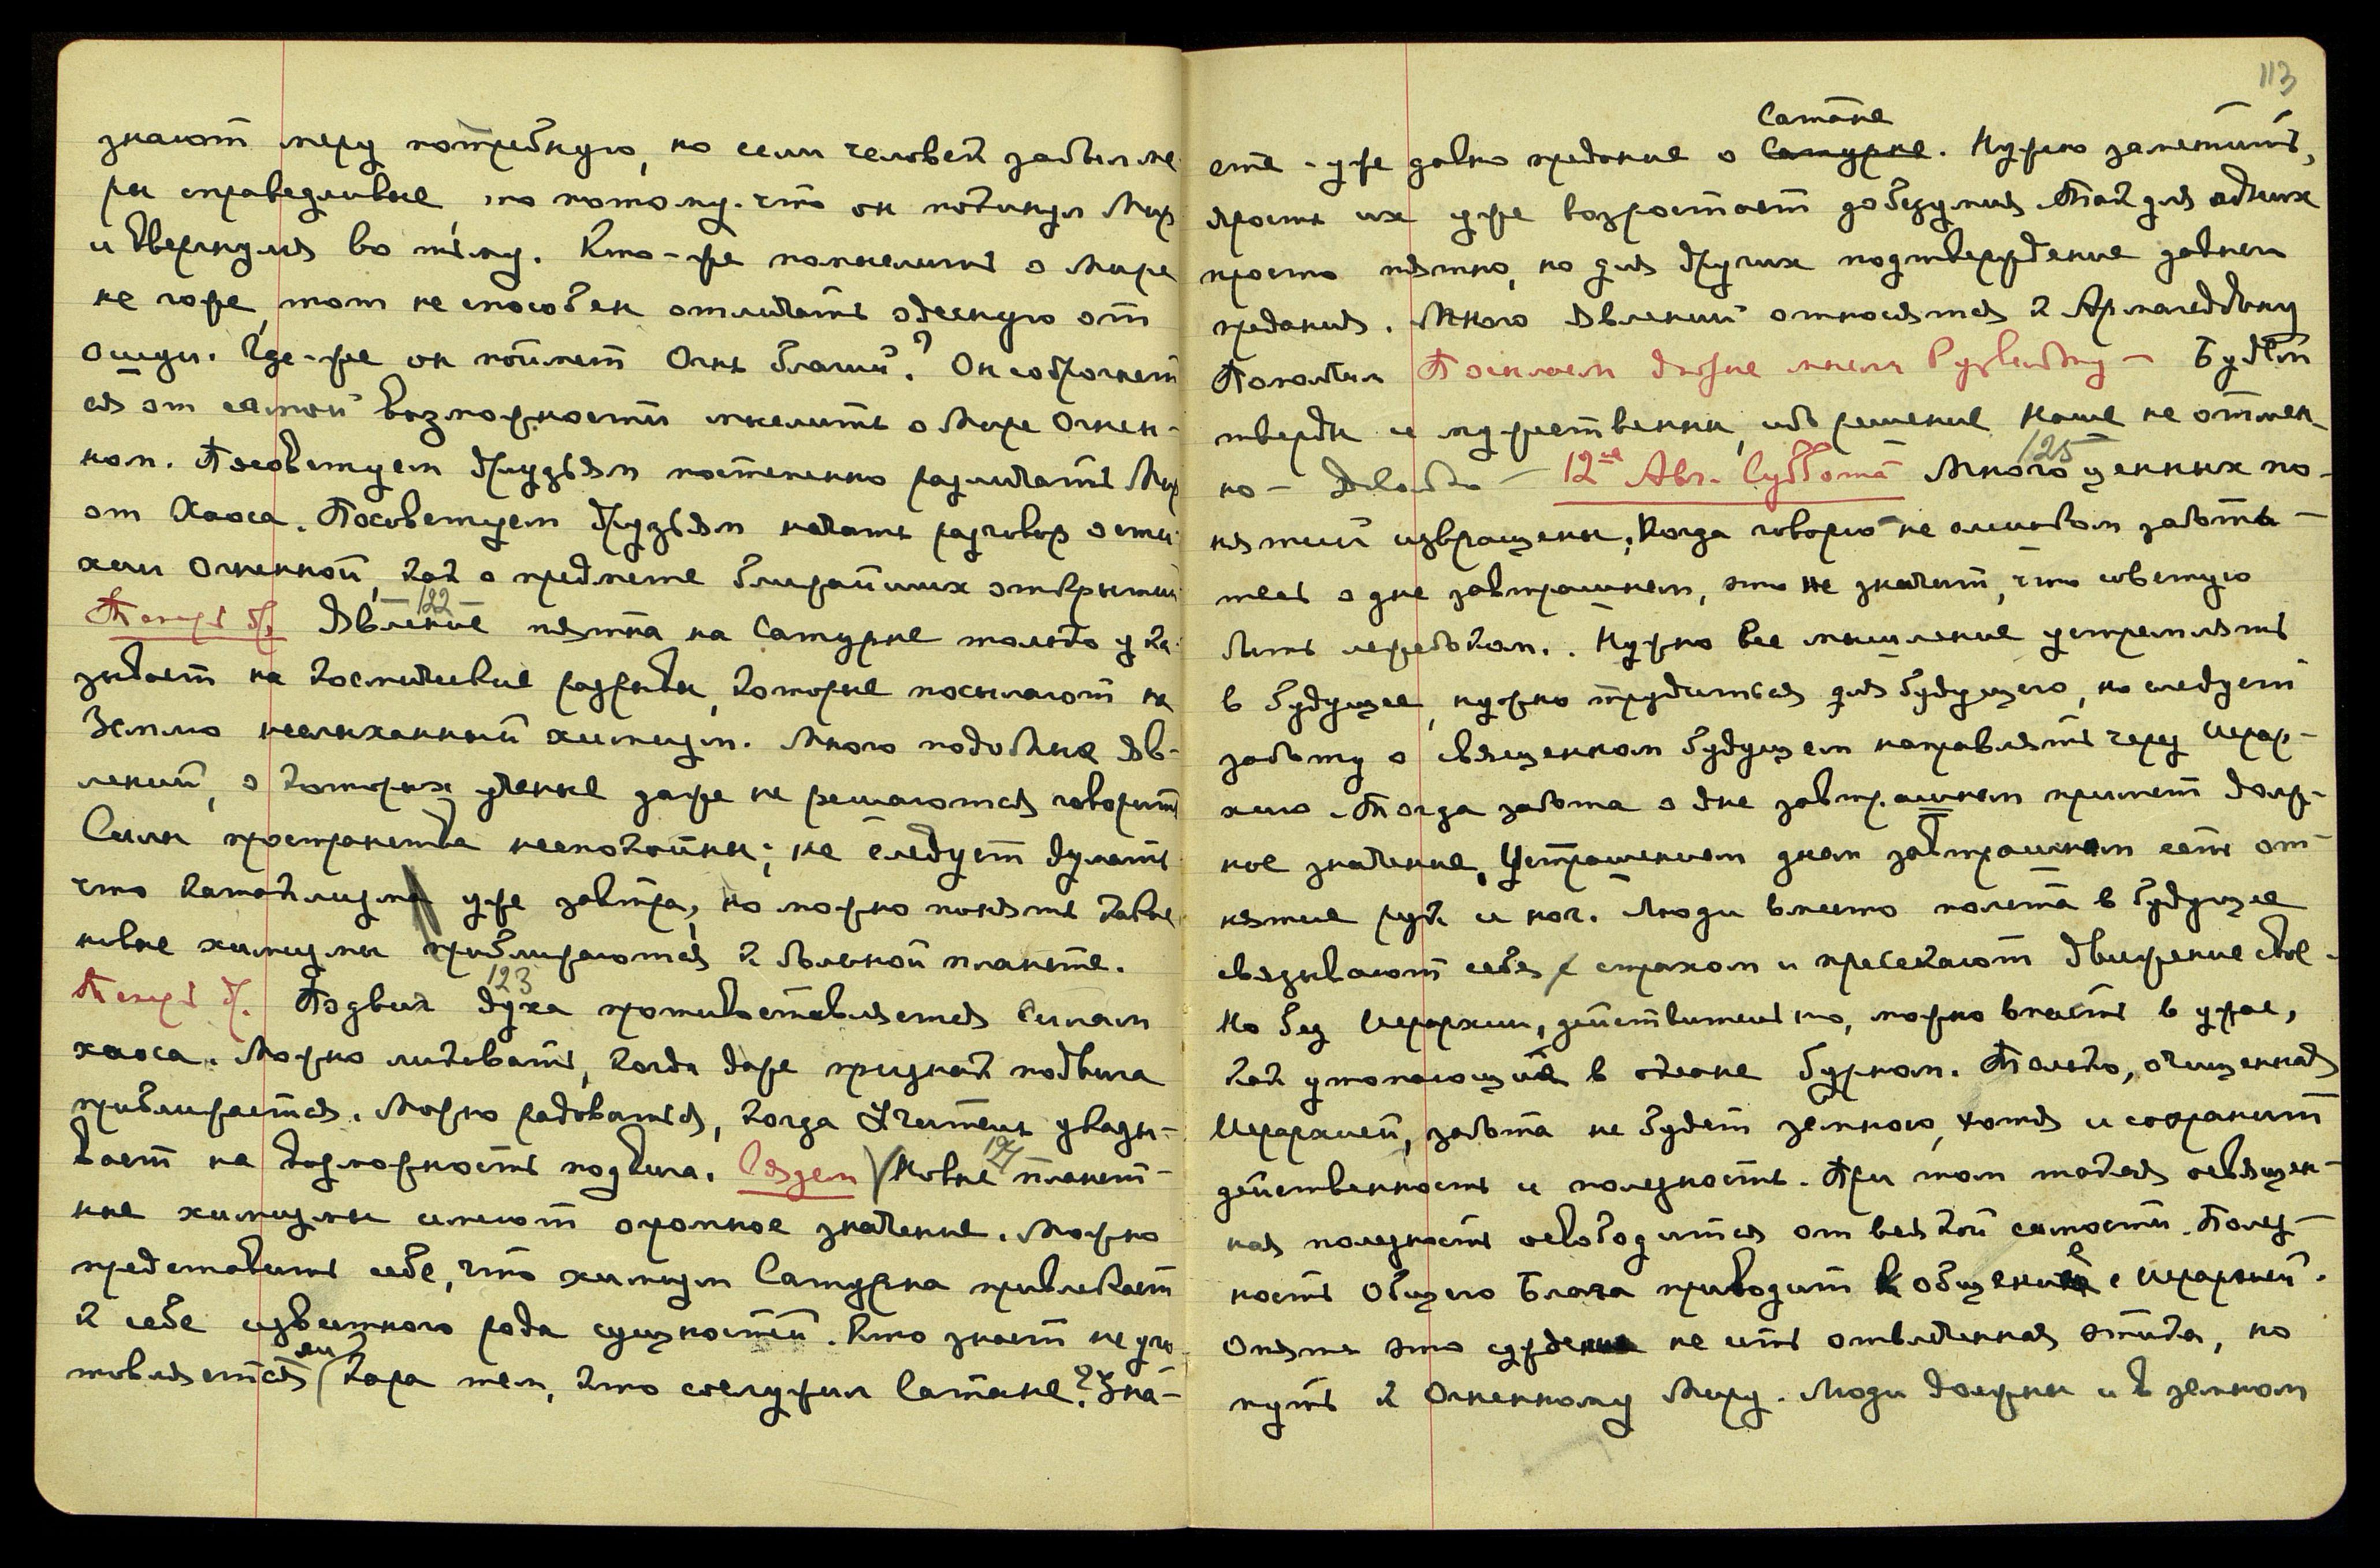 знают меру потребную, но если человек забыл ме-
ры справедливые, то потому что он покинул Мир
и ввергнулся во тьму. Кто-же помыслить о Мире
не горе, тот не способен отличать одесную от
ошуи. Где-же он поймет Огнь благий? Он содрогнет
ся от самой возможности мыслить о Мире Огнен-
ном. Посоветуем друзьям постепенно различать Мир
от Хаоса. Посоветуем друзьям начать разговор о сти-
хии Огненной, как о предмете ближайших открытий
122
Явление пятна на Сатурне только ука-
зывает на космические разрывы, которые посылают на
Землю неслыханный химизм. Много подобных яв-
лений, о которых ученые даже не решаются говорить
Силы пространства неспокойны; не следует думать
что катаклизма уже завтра, но можно понять какие
новые химизмы приближаются к больной планете.
123
Подвиг духа противоставляется силам
хаоса. Можно ликовать, когда даже признак подвига
приближается. Можно радоваться, когда Учитель указы-
вает на возможность подвига. Сядем Новые планет-
124
ные химизмы имеют огромное значение. Можно
представить себе, что химизм Сатурна привлекает
к себе известного рода сущностей. Кто знает не уго-
товляется ли кара тем, кто сослужил Сатане? Зна-
113
Сатане
ете уже давно предание о Сатурне. Нужно заметить,
ярость их уже возрастает до безумия. Так для одних
просто пятно, но для других подтверждение давнего
предания. Много явлений относятся к Армагеддону
Посылаем мысли Рузвельту - Будем
тверды и мужественны, ибо решение Наше не отмен-
но - Довольно - 12ое Авг. Суббота Много ценных по-
125
нятий извращены. Когда говорю не слишком заботь-
тесь о дне завтрашнем, это не значит, что советую
быть лежебоком. Нужно все мышление устремлять
в будущее, нужно трудиться для будущего, но следует
заботу о священном будущем направлять через Иерар-
хию. Тогда забота о дне завтрашнем примет долж-
ное значение. Устрашением днем завтрашним есть от-
нятие рук и ног. Люди вместо полета в будущее
связывают себя страхом и пресекают движение свое.
Но без Иерархии, действительно, можно впасть в ужас,
как утопающие в океане бурном. Только, очищенная
Иерархией, забота не будет земною, хотя и сохранит
действенность и полезность. При том такая освящен-
ная полезность освободится от всякой самости. Полез-
ность Общего Блага приводит к общению с Иерархией.
Опять это суждение не есть отвлеченная этика, но
путь к Огненному Миру. Люди должны и в земном